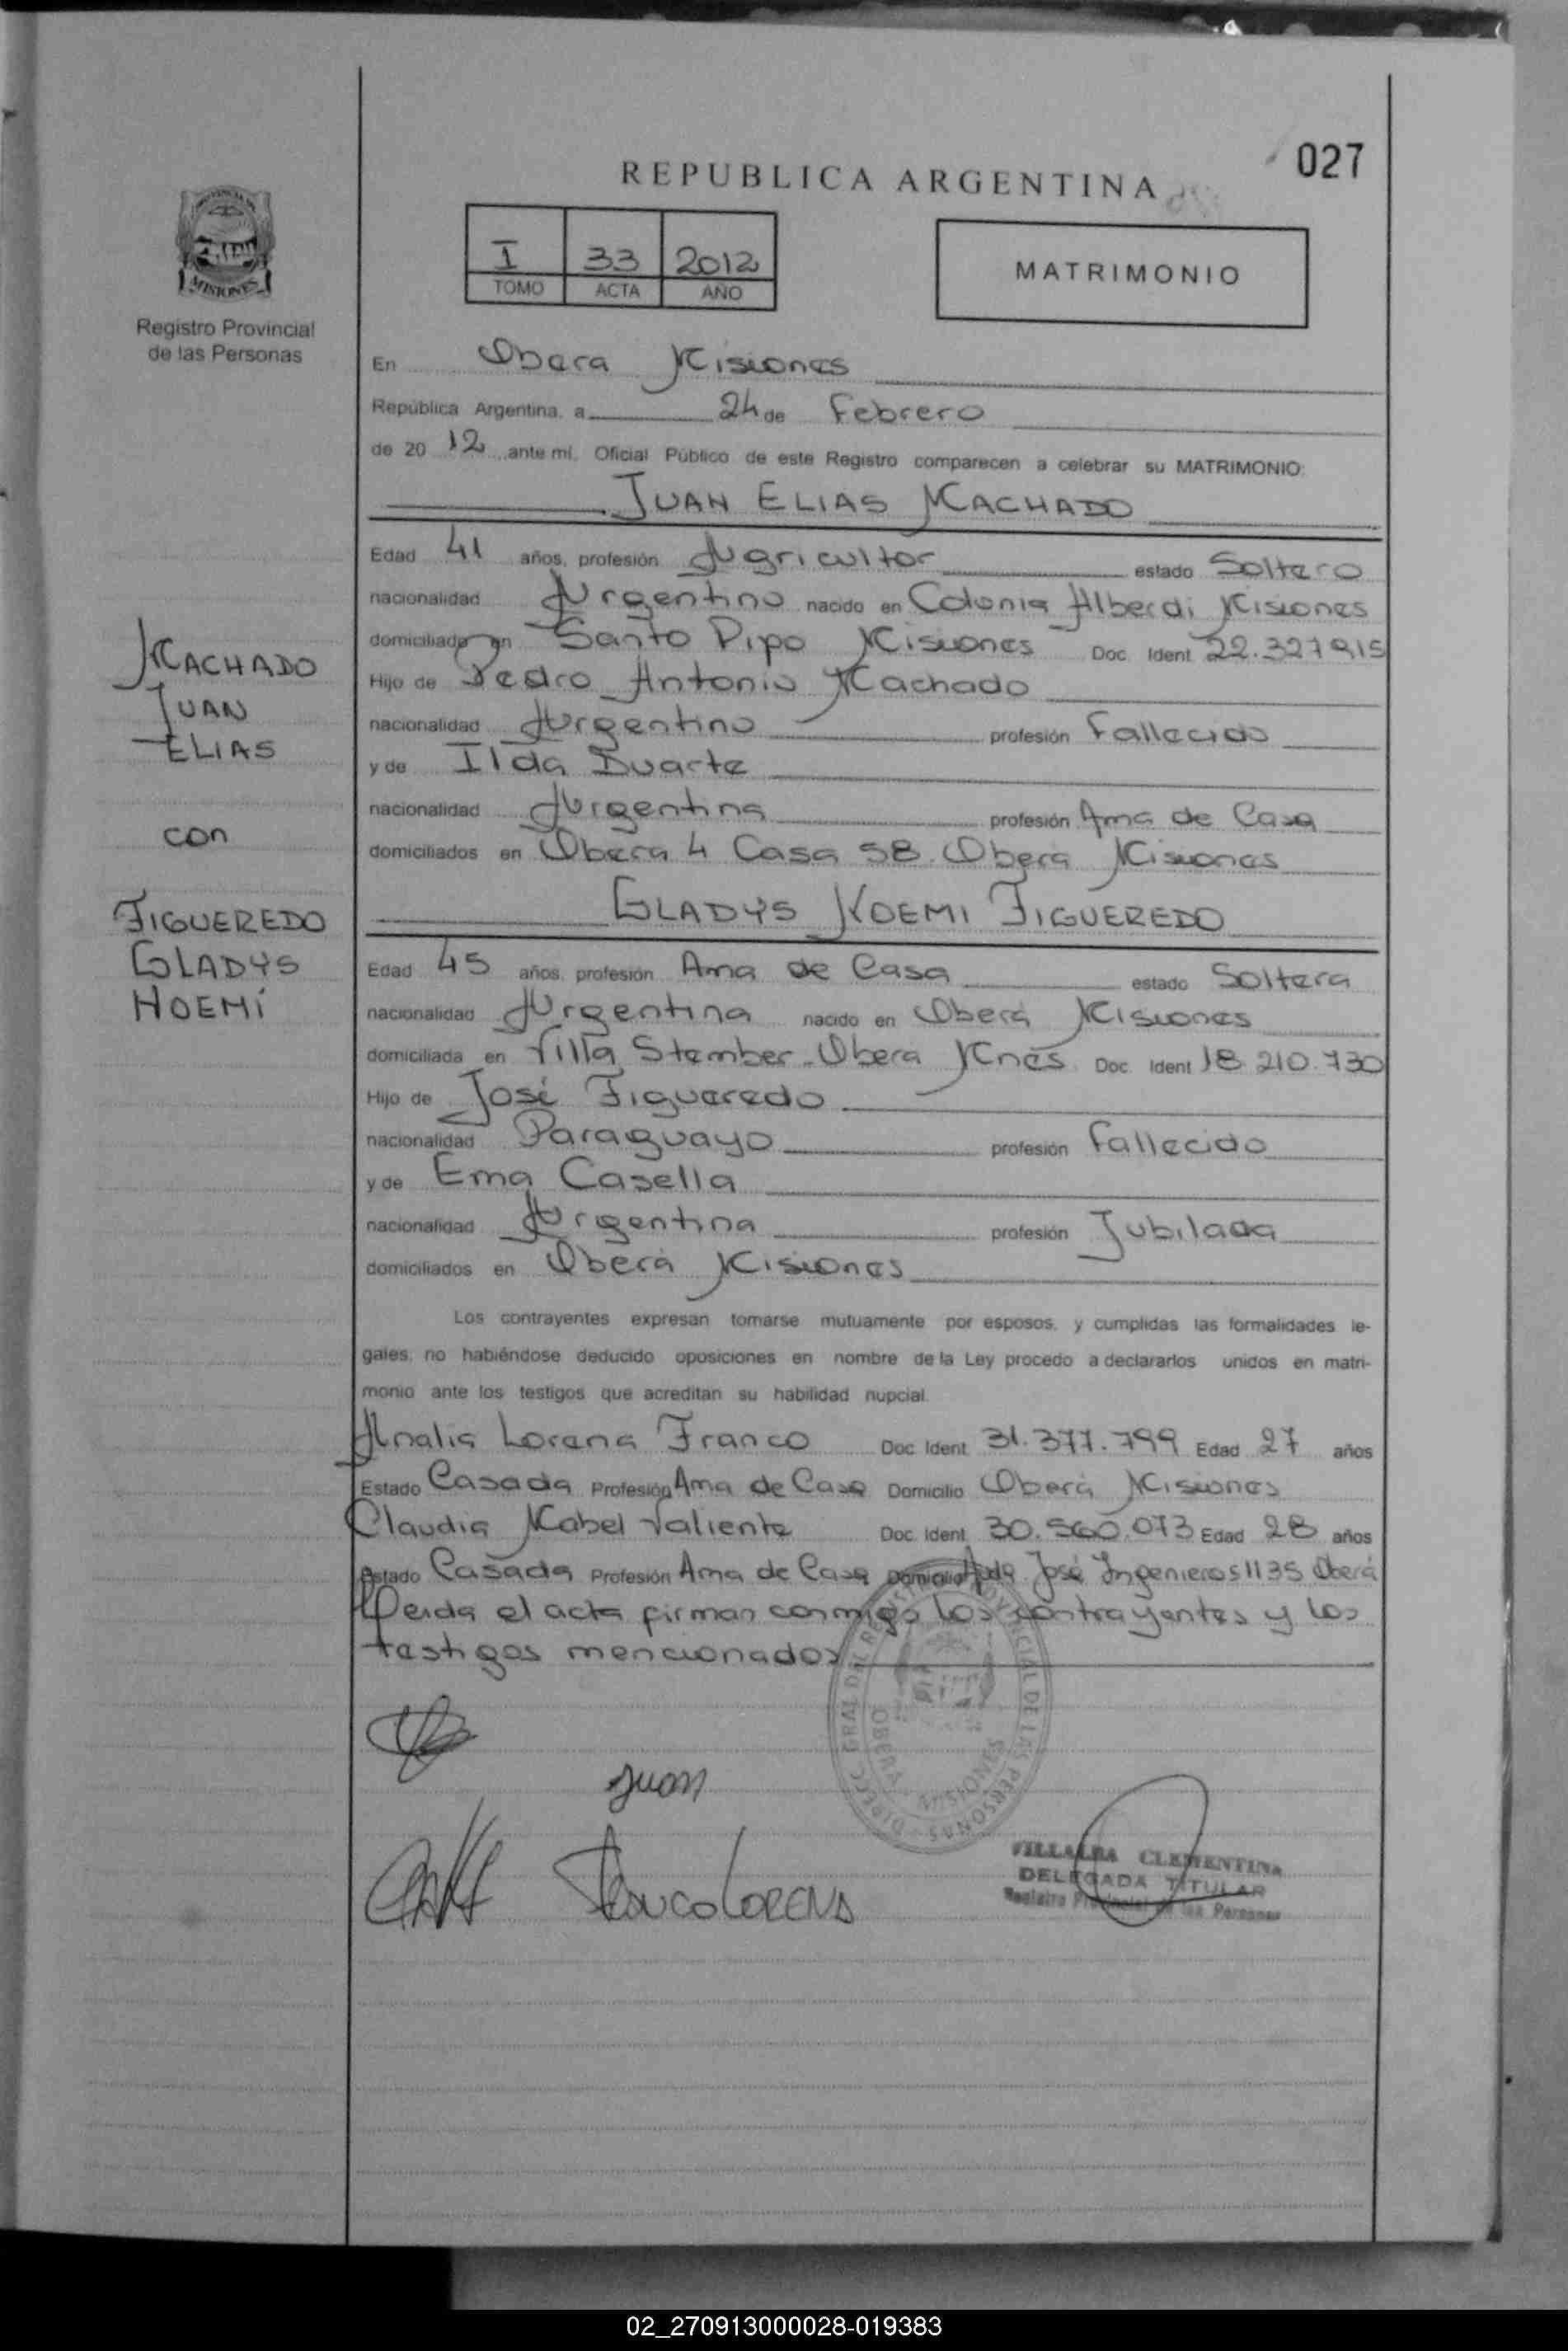 027
REPUBLICA ARGENTINA
I 33 2012
TOMO ACTA AÑO
MATRIMONIO
MISIONES
Registro Provincial
de las Personas
En Obera Misiones
República Argentina, a 24 de Febrero
de 20 12 ante mí, Oficial Público de este Registro comparecen a celebrar su MATRIMONIO:
JUAN ELIAS MACHADO
Edad 41 años, profesión Agricultor estado Soltero
nacionalidad Argentino nacido en Colonia Alberdi Misiones
domiciliado en Santo Pipo Misiones Doc. Ident. 22.327.915
Hijo de Pedro Antonio Machado
nacionalidad Argentino profesión Fallecido
y de Ilda Duarte
nacionalidad Argentina profesión Ama de Casa
domiciliados en Oberá 4 Casa 58. Oberá Misiones
GLADYS NOEMI FIGUEREDO
Edad 45 años, profesión Ama de Casa estado Soltera
nacionalidad Argentina nacido en Oberá Misiones
domiciliada en Villa Stember - Obera Mnes. Doc. Ident. 18.210.730
Hijo de José Figueredo
nacionalidad Paraguayo profesión Fallecido
y de Ema Casella
nacionalidad Argentina profesión Jubilada
domiciliados en Oberá Misiones
MACHADO
JUAN
ELIAS
con
FIGUEREDO
GLADYS
NOEMÍ
Los contrayentes expresan tomarse mutuamente por esposos, y cumplidas las formalidades le-
gales, no habiéndose deducido oposiciones en nombre de la Ley procedo a declararlos unidos en matri-
monio ante los testigos que acreditan su habilidad nupcial.
Analia Lorena Franco Doc. Ident. 31.377.799 Edad 27 años
Estado Casada Profesión Ama de Casa Domicilio Oberá Misiones
Claudia Mabel Valiente Doc. Ident. 30.560.073 Edad 28 años
Estado Casada Profesión Ama de Casa Domicilio Avda. José Ingenieros 1135 Oberá
Leida el acta firman conmigo los contrayentes y los
testigos mencionados
DIRECC. GRAL. DEL REGISTRO PROVINCIAL DE LAS PERSONAS
OBERA MISIONES
Juan
Franco LORENA
VILLALBA CLEMENTINA
DELEGADA TITULAR
Registro Provincial de las Personas
02_270913000028-019383